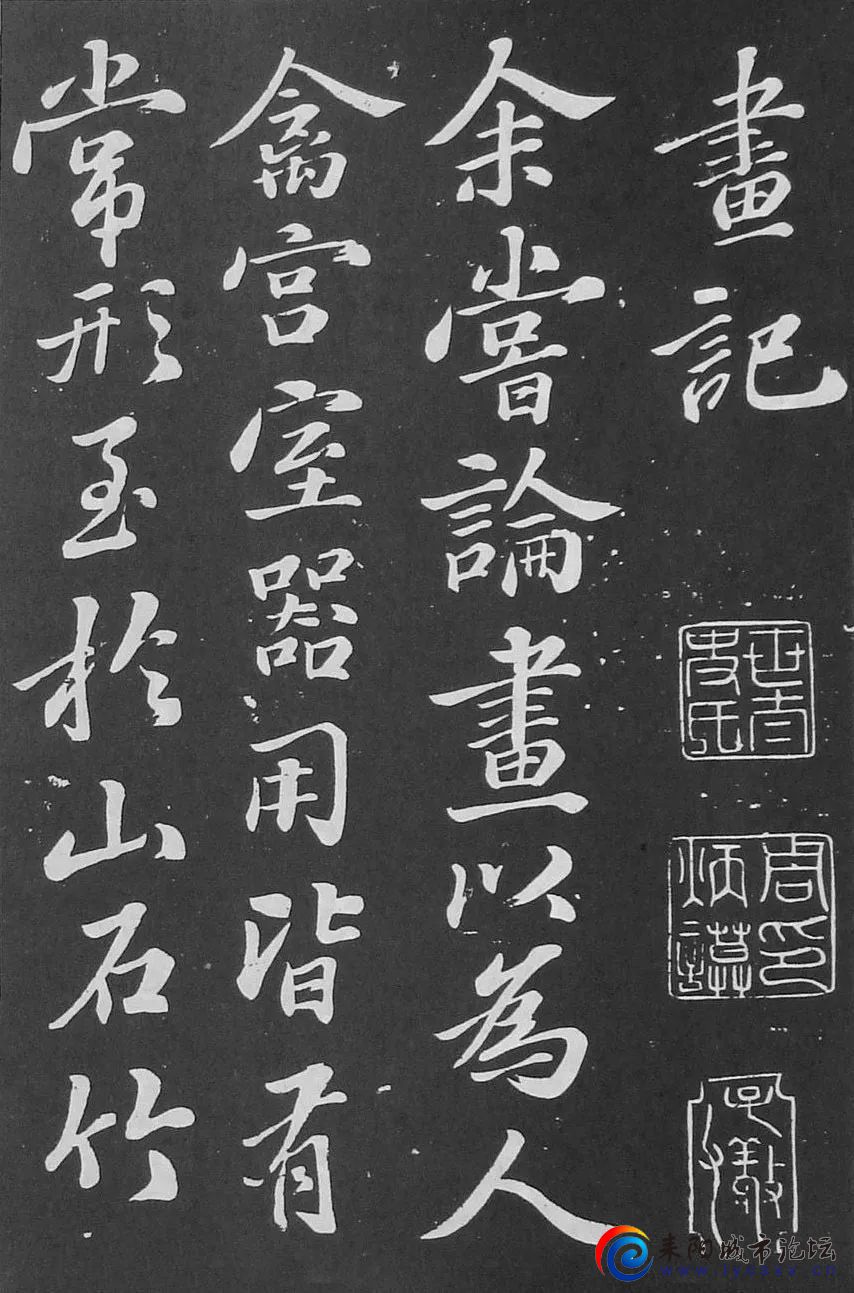 畫記
余嘗論畫以為人
禽宮室器用皆有
常形至於山石竹
周印
炳謨
耒阳城市论坛